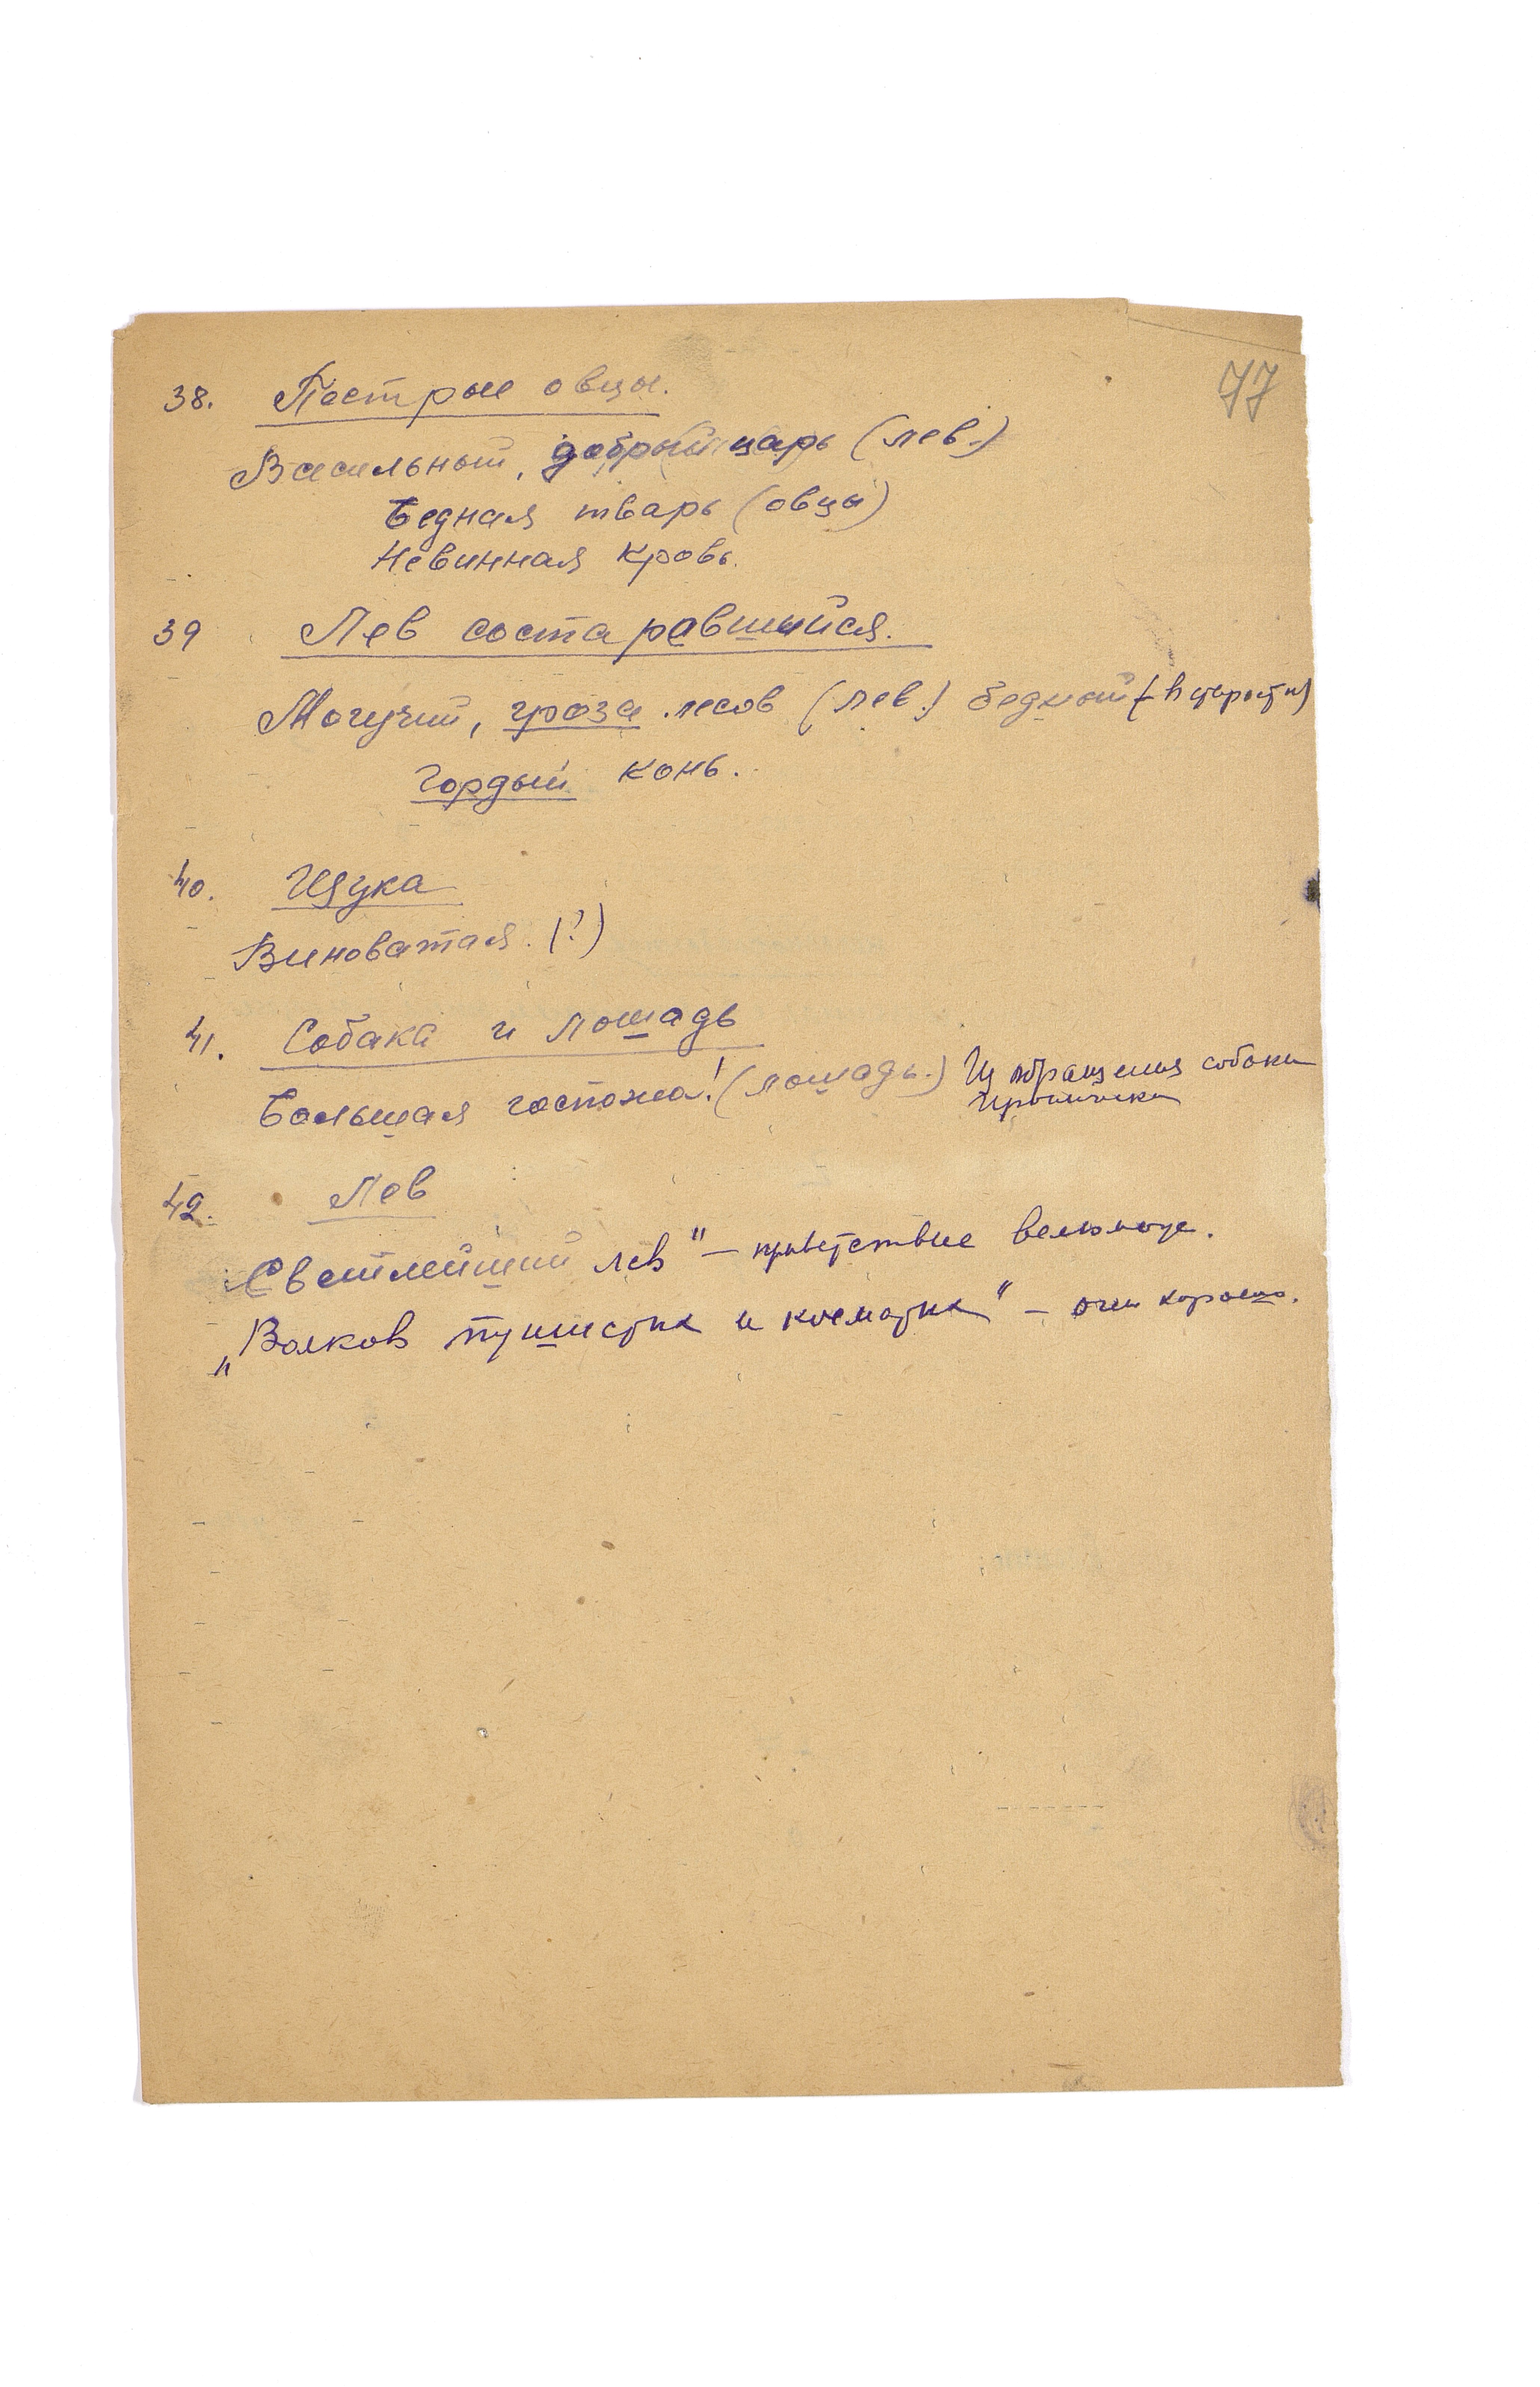 77
38. Пестрые овцы.
Всесильный, добрый царь (лев.)
Бедная тварь (овцы)
Невинная кровь.
39 Лев состаревшийся.
Могучий, гроза лесов (лев.) бедный (в старости)
Гордый конь.
40. Щука
Виноватая. (?)
41. Собака и лошадь
Большая госпожа! (лошадь.) Из обращения собаки
Иронически
42. Лев
„Светлейший лев" – приветствие вельможе.
„Волков пушистых и косматых" – очень хорошо.